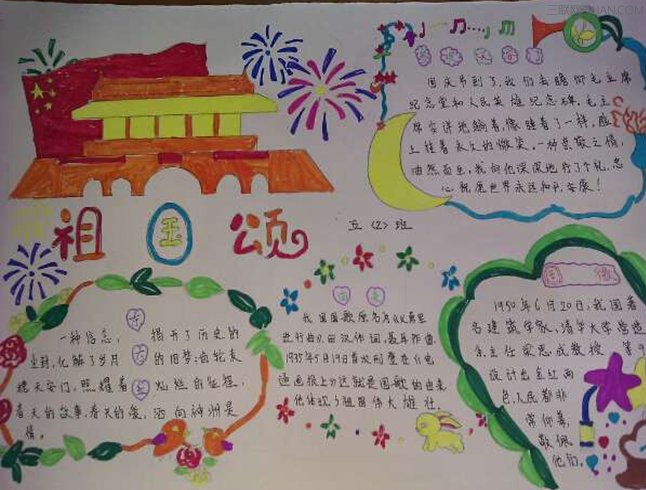 祖国颂
五(2)班
国庆节到了,我们去瞻仰毛主席
纪念堂和人民英雄纪念碑,毛主
席安详地躺着,像睡着了一样,脸
上挂着永久的微笑,一种崇敬之情,
油然而生,我向他深深地行了个礼,忠
心祝愿世界永远和平、安康!
一种信念,揭开了历史的
尘封,化解了岁月的旧梦;
天安门,照耀着
春天的故事,春天的爱,洒向神州是
情。
国歌
我国国歌原名为《义勇军
进行曲》田汉作词,聂耳作曲
1935年5月
他体现了祖国伟大雄壮。
国徽
1950年6月20日,我国著
名建筑学家,清华大学营造
系主任梁思成教授
设计出
色,人民都非
常仰慕,
敬佩
他们。